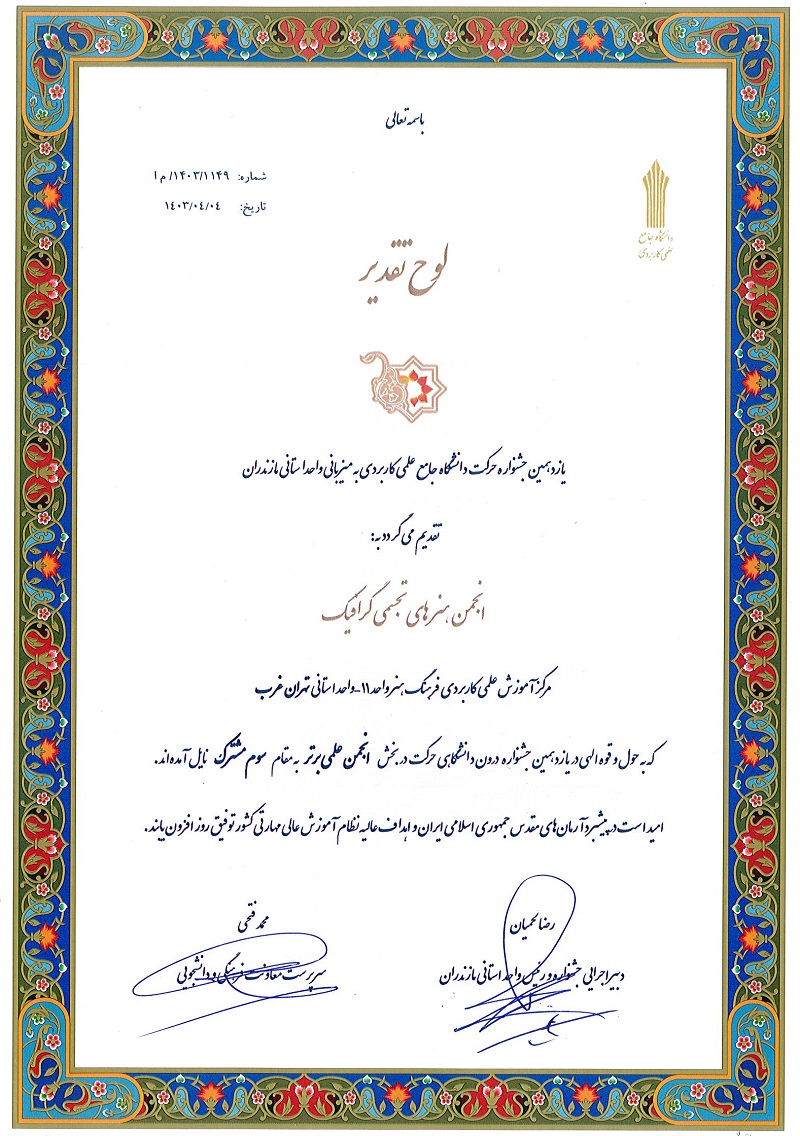 باسمه تعالی
شماره: ۱۴۰۳/۱۱۴۹/ م ا
تاریخ: ۱۴۰۳/۰۴/۰۴
دانشگاه جامع
علمی کاربردی
لوح تقدیر
یازدهمین جشنواره حرکت دانشگاه جامع علمی کاربردی به میزبانی واحد استانی مازندران
تقدیم می گردد به:
انجمن هنرهای تجسمی گرافیک
مرکز آموزش علمی کاربردی فرهنگ هنر واحد ۱۱-واحد استانی تهران غرب
که به حول و قوه الهی در یازدهمین جشنواره درون دانشگاهی حرکت در بخش انجمن علمی برتر به مقام سوم مشترک نایل آمده اند.
امید است در پیشبرد آرمان های مقدس جمهوری اسلامی ایران و اهداف عالیه نظام آموزش عالی مهارتی کشور توفیق روز افزون یابند.
رضا لحمیان
دبیر اجرایی جشنواره و رئیس واحد استانی مازندران
محمد فتحی
سرپرست معاونت فرهنگی و دانشجویی